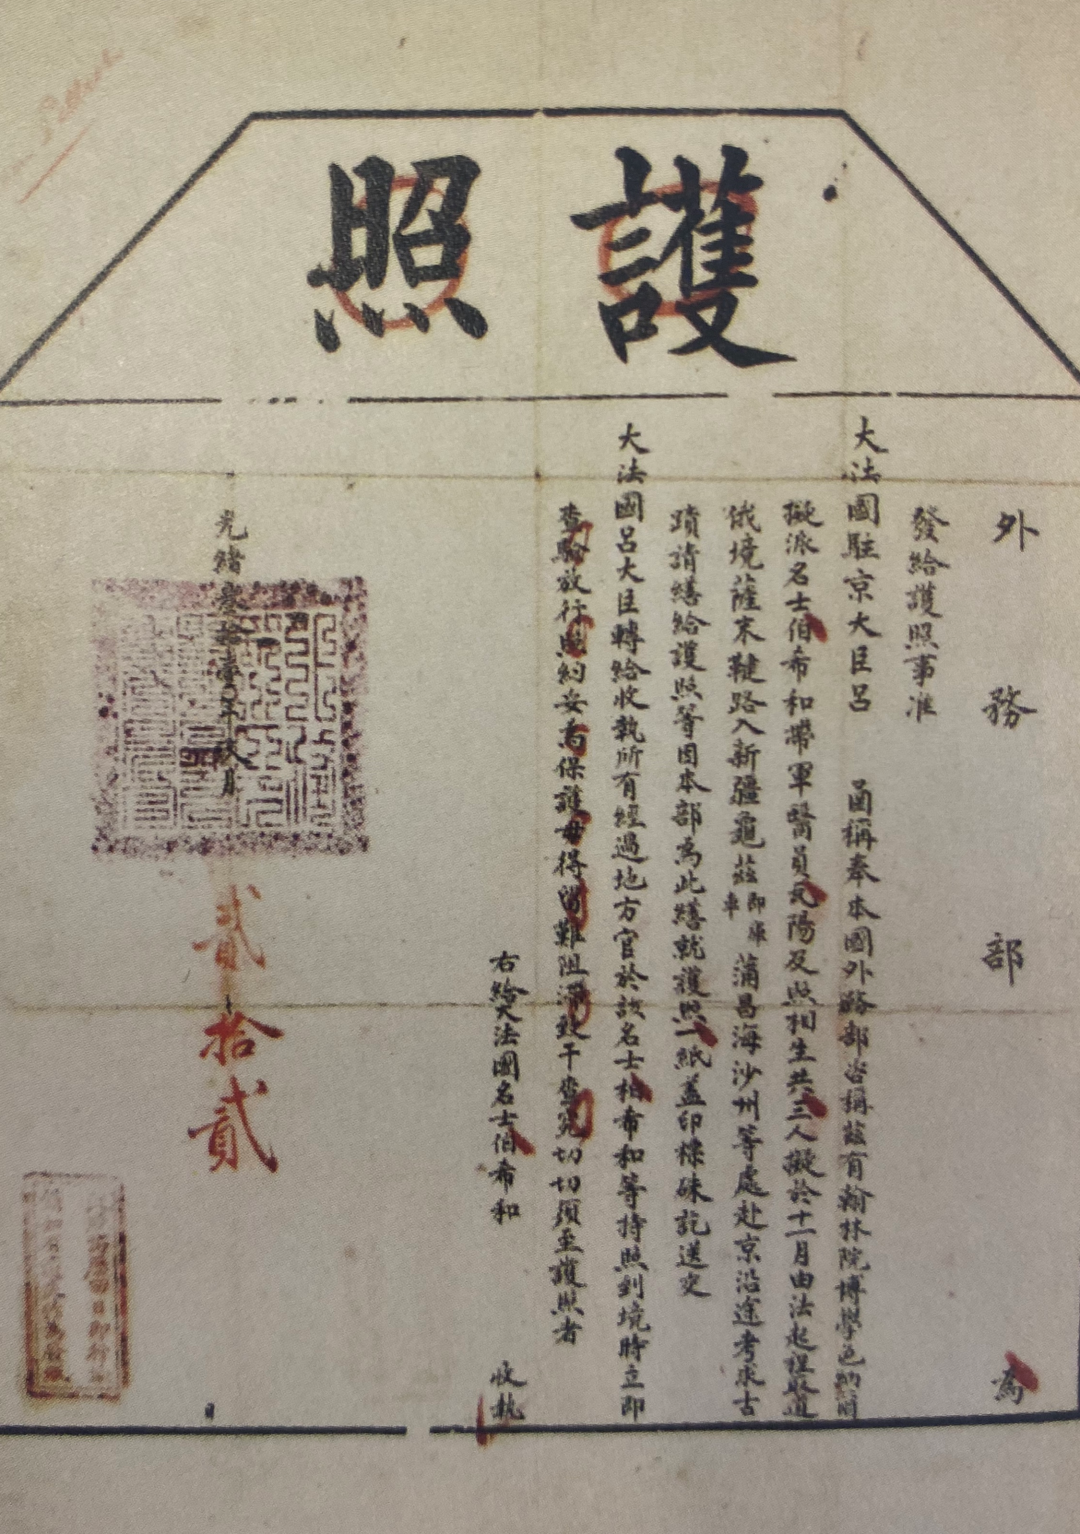 護照
外務部 為
發給護照事准
大法國駐京大臣呂 函稱奉本國外務部咨稱茲有翰林院博學色納爾
擬派名士伯希和帶軍醫員瓦陽及照相生共三人擬於十一月由法起程取道
俄境薩末鞬路入新疆龜茲即庫車蒲昌海沙州等處赴京沿途考求古
蹟請繕給護照等因本部為此繕就護照一紙蓋印標硃訖送交
大法國呂大臣轉給收執所有經過地方官於該名士柏希和等持照到境時立即
查驗放行照約妥為保護毋得留難阻滯致干查究切切須至護照者
右給大法國名士伯希和 收執
光緒叁拾壹年 月
貳拾貳